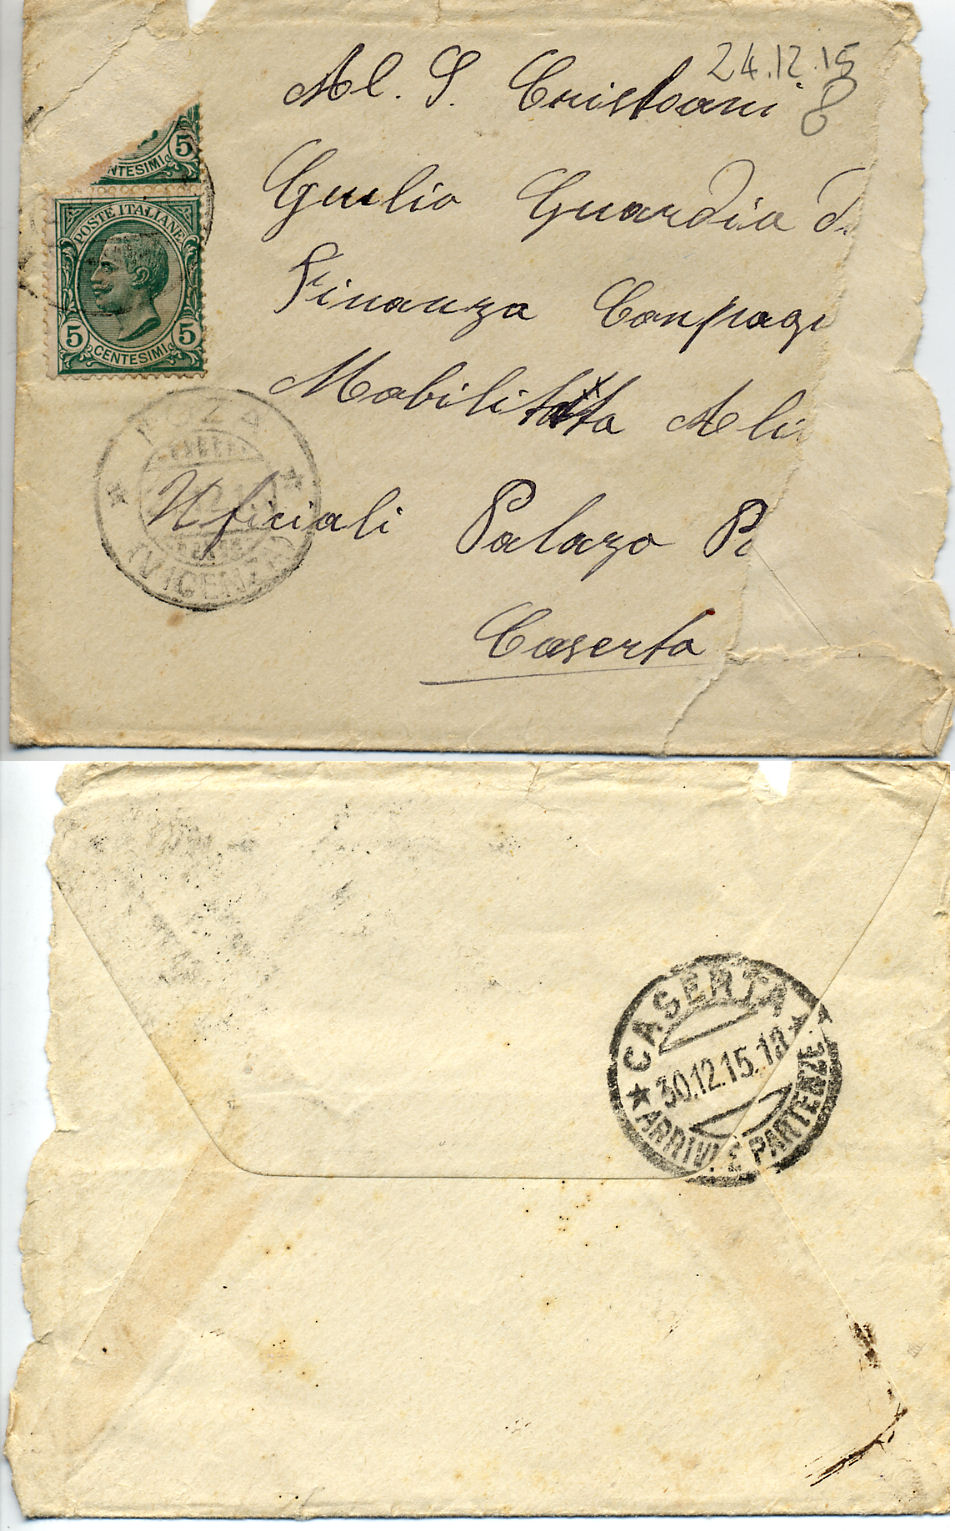 24.12.15
8
Al. S. Cristoani
Giulio Guardia d.
Finanza Conpag
Mobilitata Ali
Uficiali Palazo P
Caserta
5
CENTESIMI
POSTE ITALIANE
5 5
CENTESIMI
(VICENZA)
CASERTA
30.12.15.18
ARRIVI E PARTENZE